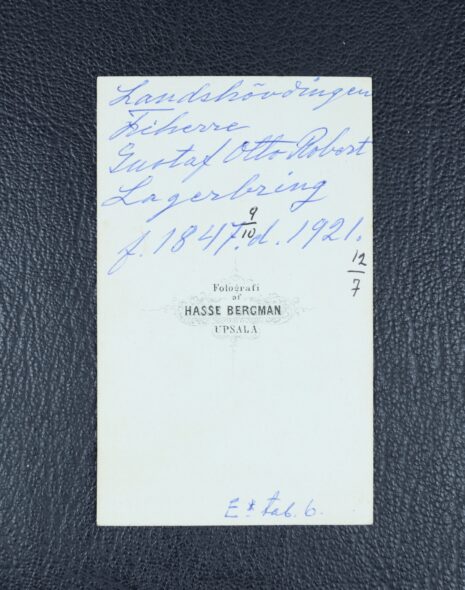 Landshövdingen
Friherre
Gustaf Otto Robert
Lagerbring
f. 1847 9/10 d. 1921. 12/7
Fotografi
af
HASSE BERGMAN
UPSALA
E* tab. 6.